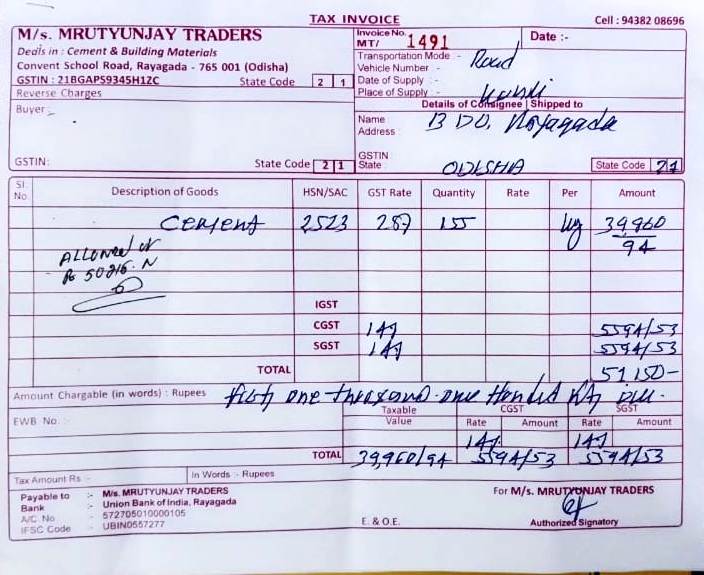 TAX INVOICE
Cell : 94382 08696
M/s. MRUTYUNJAY TRADERS
Deals in : Cement & Building Materials
Convent School Road, Rayagada - 765 001 (Odisha)
GSTIN : 21BGAPS9345H1ZC State Code 2 1
Reverse Charges
Buyer :-
GSTIN: State Code 2 1
Invoice No. MT/ 1491 Date :-
Transportation Mode :- Road
Vehicle Number :-
Date of Supply :-
Place of Supply :-
Details of Consignee | Shipped to
Name BDO, Rayagada
Address :
GSTIN :
State : ODISHA State Code 21
Sl. No. Description of Goods HSN/SAC GST Rate Quantity Rate Per Amount
Cement 2523 28% 155 39,960/94
ALLOWED
IGST
CGST 14% 5594/53
SGST 14% 5594/53
TOTAL 51,150-
Amount Chargable (in words) : Rupees Fifty one thousand one Hundred fifty
EWB No. :- Taxable Value CGST SGST
Rate Amount Rate Amount
14% 14%
TOTAL 39,960/94 5594/53 5594/53
Tax Amount Rs :- In Words :- Rupees
Payable to :- M/s. MRUTYUNJAY TRADERS
Bank :- Union Bank of India, Rayagada
A/C. No :- 572705010000105
IFSC Code :- UBIN0557277
E. & O.E.
For M/s. MRUTYUNJAY TRADERS
Authorized Signatory